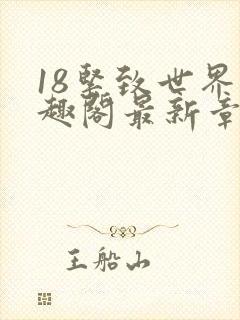 18坚致世界
趣阁最新章
王船山